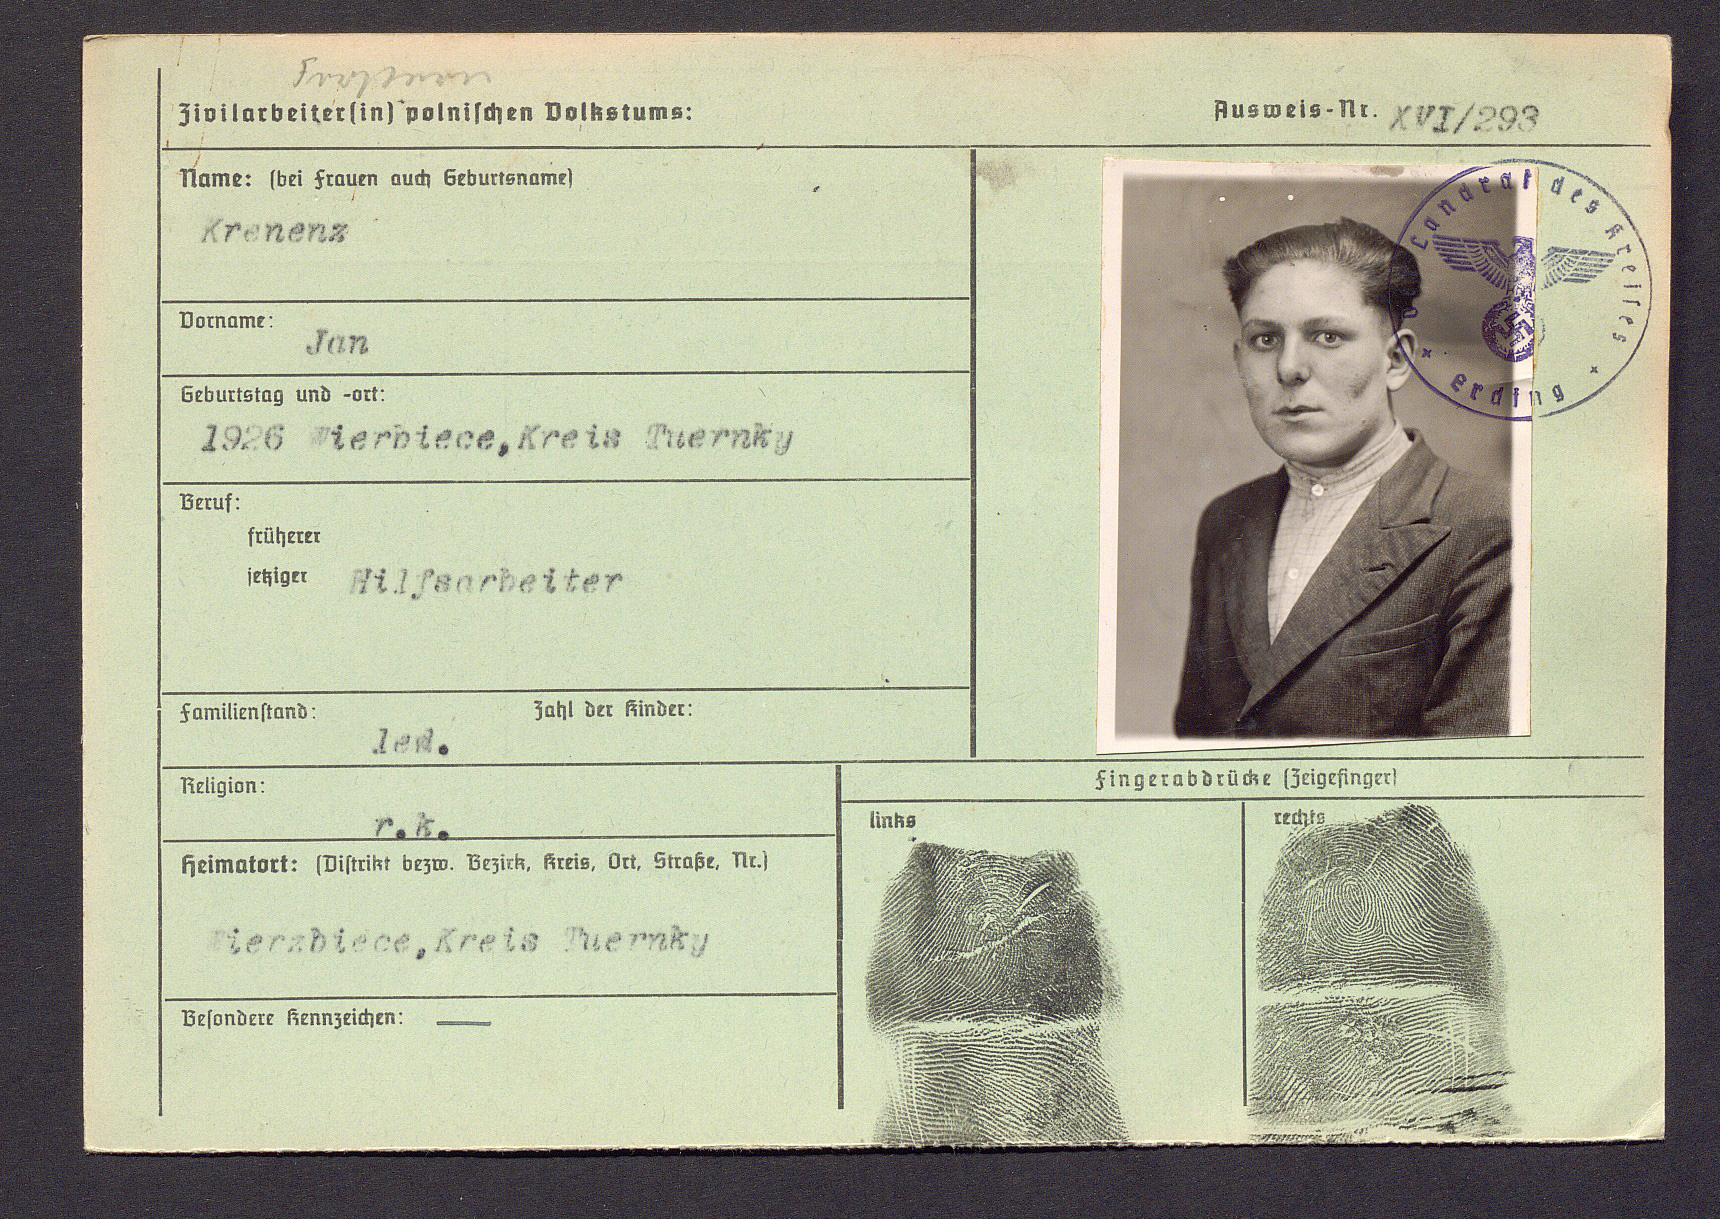 Zivilarbeiter(in) polnischen Volkstums:
Ausweis-Nr. XVI/293
Name: (bei Frauen auch Geburtsname)
Krenenz
Vorname:
Jan
Geburtstag und -ort:
1926 Wierbiece,Kreis Tuernky
Beruf:
früherer
jetziger Hilfsarbeiter
Familienstand: Zahl der Kinder:
led.
Religion:
r.k.
Heimatort: (Distrikt bezw. Bezirk, Kreis, Ort, Straße, Nr.)
Wierzbiece,Kreis Tuernky
Besondere Kennzeichen: —
Landrat des Kreises
Erding
Fingerabdrücke (Zeigefinger)
links
rechts